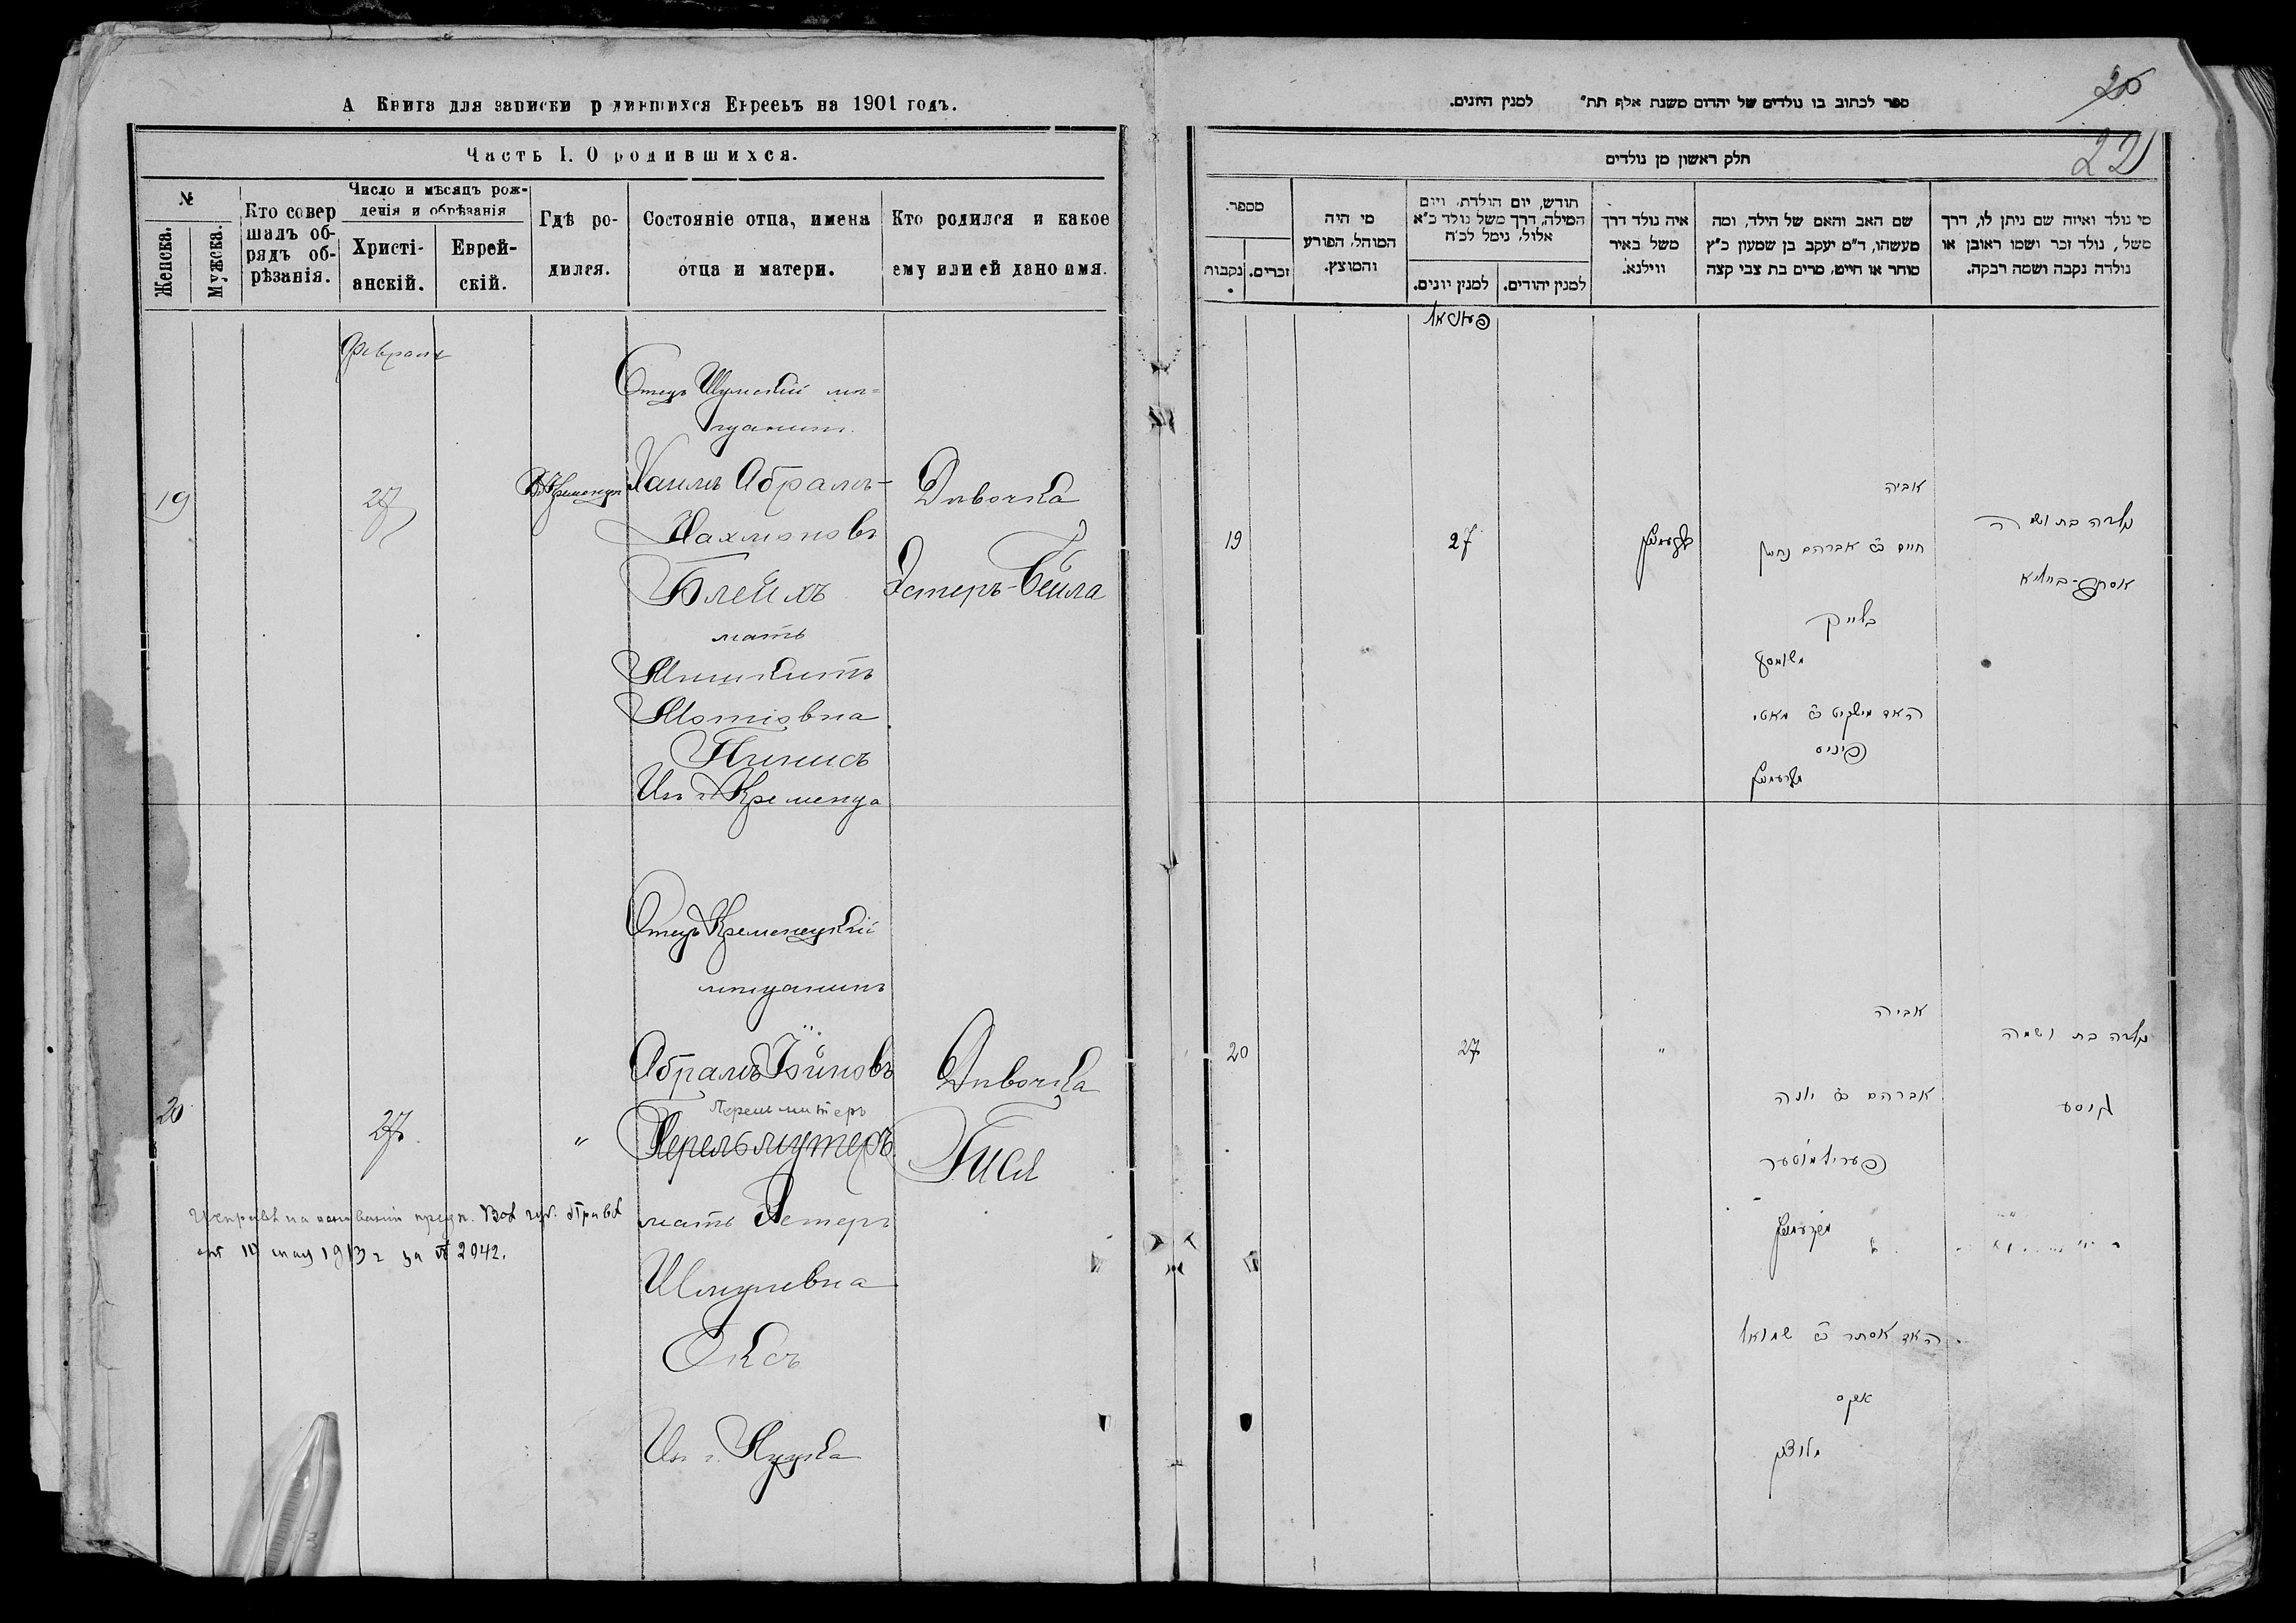 А Книга для записки родившихся Евреевъ на 1901 годъ.
Часть I. О родившихся.
№
Женска.
Мужска.
Кто совер
шалъ об-
рядъ об-
рѣзанія.
Число и мѣсяцъ рож-
денія и обрѣзанія
Христі-
анскій.
Еврей-
скій.
Гдѣ ро-
дился.
Состояніе отца, имена
отца и матери.
Кто родился и какое
ему или ей дано имя.
Февраля
19
27
Кременцѣ
Отецъ Шумскій мѣ-
щанинъ
Хаимъ Абрамъ-
Нахмоновъ
Блейхъ
мать
Мишкитъ
Мотіовна
Пинисъ
Из г. Кременца
Дѣвочка
Эстеръ-Бейла
20
27
"
Отецъ Кременецкій
мѣщанинъ
Абрамъ Іойновъ
Перельмитеръ
Перельмутеръ
мать Эстеръ
Шмулевна
Оксъ
Из г. Луцка
Дѣвочка
Гися
Исправ. на основаніи предп. Вол. губ. Прав.
отъ 10 мая 1913 г за № 2942.
20
22
ספר לכתוב בו נולדים של יהדום משנת אלף תת" למנין היונים.
חלק ראשון מן נולדים
מספר.
נקבות
זכרים.
מי היה
המוהל, הפורע
והמוצץ.
חודש, יום הולדת, ויום
המילה, דרך משל נולד כ"א
אלול, נימל לכ"ח
למנין יונים.
למנין יהודים.
איה נולד דרך
משל באיר
ווילנא.
שם האב והאם של הילד, ומה
מעשהו, ד"מ יעקב בן שמעון כ"ץ
סוחר או חייט, מרים בת צבי קצה
מי נולד ואיזה שם ניתן לו, דרך
משל, נולד זכר ושמו ראובן או
נולדה נקבה ושמה רבקה.
פעוראל
19
27
קרעמניץ
אביה
חיים ב"ר אברהם נחמן
בלייך
משומסק
האם מישקיט ב"ר מאטי
פיניס
מקרעמניץ
נולדה בת ושמה
אסתר-ביילא
20
27
"
אביה
אברהם ב"ר יונה
פערילמוטער
מקרעמניץ
האם אסתר ב"ר שמואל
אקס
מלוצק
נולדה בת ושמה
גיסע